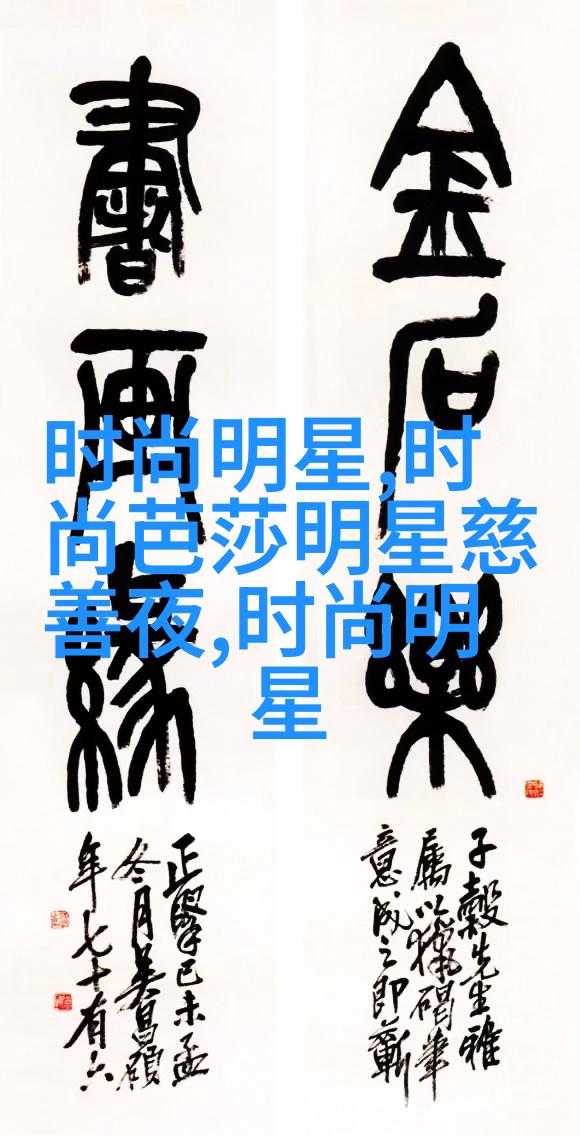 金石樂
子穀先生雅
屬以獵碣筆
意成之即蘄
書畫緣
正 己未孟
冬月吳昌碩
年七十有六
时尚明星,时
尚芭莎明星慈
善夜,时尚明
星